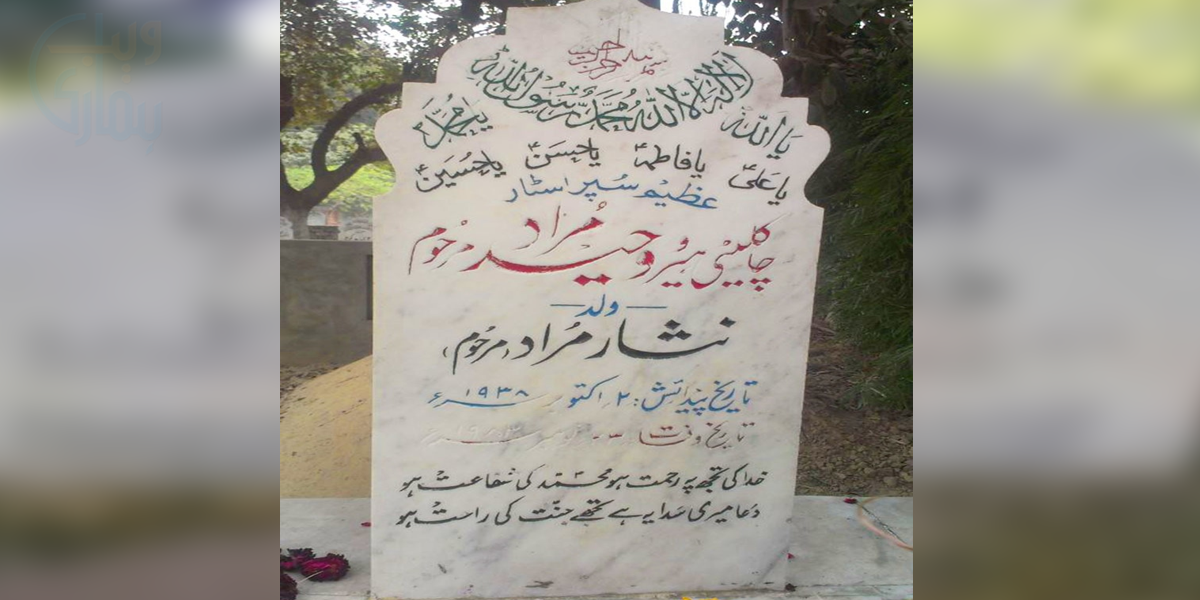 لا اله الا الله محمد رسول الله
یا اللہ یا محمدؐ
یا علیؑ یا فاطمہؑ یا حسنؑ یا حسینؑ
عظیم سُپر اسٹار
چاکلیٹی ہیرو وحید مُراد مرحُوم
ولد
نثار مُراد (مرحُوم)
تاریخ پیدائش: ۲ اکتوبر ۱۹۳۸ء
تاریخ وفات
خدا کی تجھ پہ رحمت ہو محمدؐ کی شفاعت ہو
دُعا میری سَدا یہ ہے تجھے جنّت کی راحت ہو